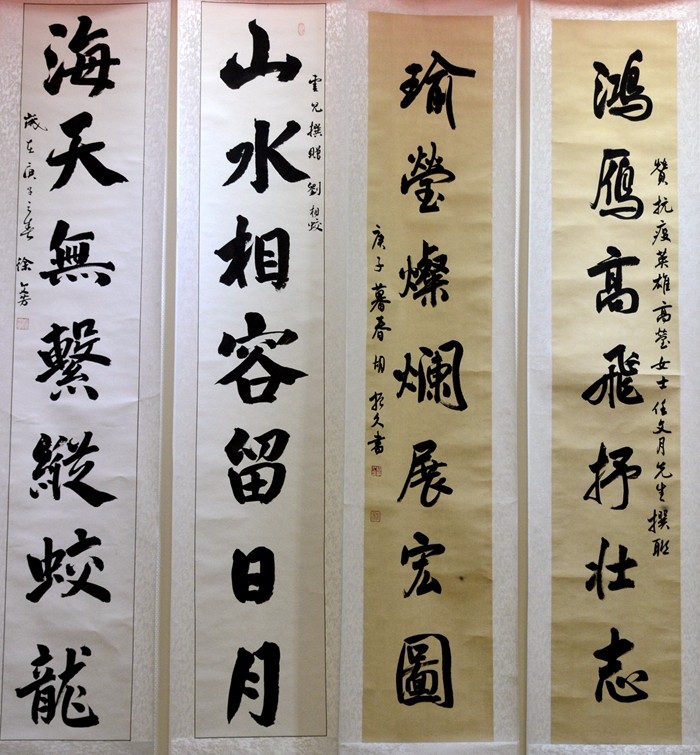 鴻鴈高飛抒壯志
贊抗疫英雄高瑩女士任文月先生撰聯
瑜瑩燦爛展宏圖
庚子暮春胡 久書
山水相容留日月
雲兄撰贈劉相蛟
海天無繫縱蛟龍
歲在庚子之春 徐 芳